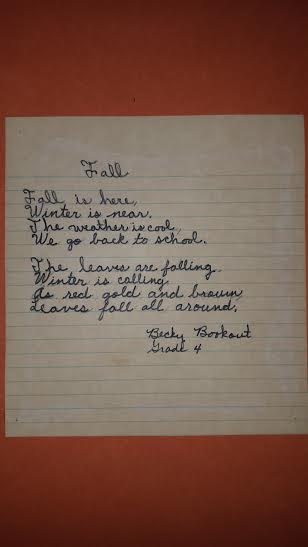 Fall
Fall is here,
Winter is near.
The weather is cool,
We go back to school.
The leaves are falling.
Winter is calling
As red gold and brown
Leaves fall all around.
Becky Bookout
Grade 4